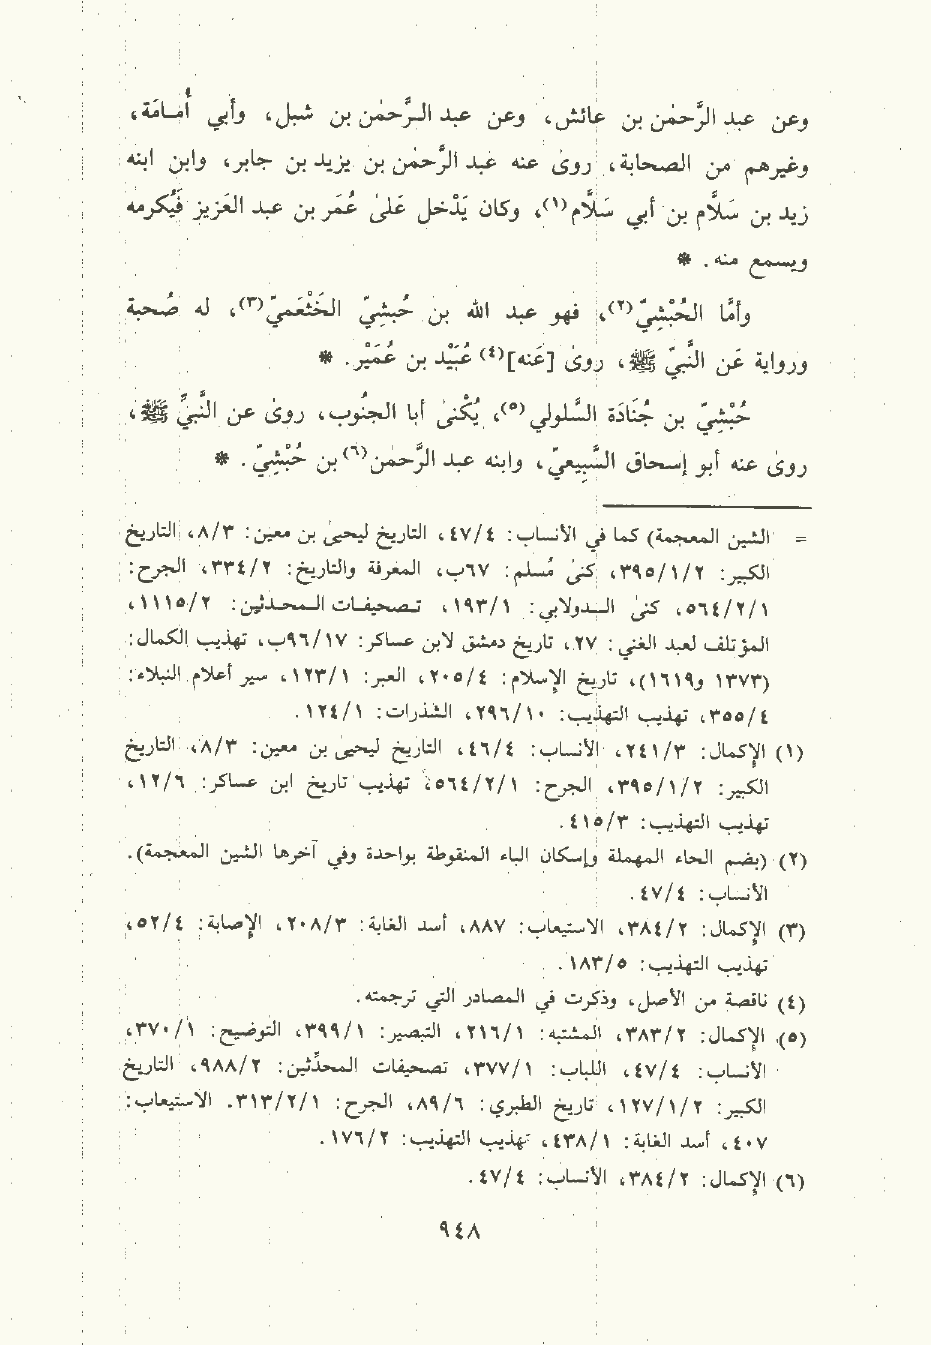 وعن عبد الرَّحمٰن بن عائش، وعن عبد الرَّحمٰن بن شبل، وأبي أُمـامَة،
وغيرهم من الصحابة، روىٰ عنه عبد الرَّحمٰن بن يزيد بن جابر، وابن ابنه
زيد بن سَلاَّم بن أبي سَلاَّم(١)، وكان يَدْخل عَلىٰ عُمَر بن عبد العَزيز فَيُكرمه
ويسمع منه. *
وأمَّا الحُبْشِيّ(٢)، فهو عبد الله بن حُبشِيّ الخَثْعَميّ(٣)، له صُحبة
ورواية عَن النَّبيّ ﷺ، روىٰ [عَنه](٤) عُبَيْد بن عُمَيْر. *
حُبْشِيّ بن جُنَادَة السَّلولي(٥)، يُكْنىٰ أبا الجنُوب، روىٰ عن النَّبيِّ ﷺ،
روىٰ عنه أبو إسحاق السَّبِيعيّ، وابنه عبد الرَّحمٰن(٦) بن حُبْشِيّ. *
= الشين المعجمة) كما في الأنساب: ٤٧/٤، التاريخ ليحيىٰ بن معين: ٨/٣، التاريخ
الكبير: ٣٩٥/١/٢، كنىٰ مُسلم: ٦٧ب، المعرفة والتاريخ: ٣٣٤/٢، الجرح:
٥٦٤/٢/١، كنىٰ الـدولابي: ١٩٣/١، تـصحيفـات المـحـدثين: ١١١٥/٢،
المؤتلف لعبد الغني: ٢٧، تاريخ دمشق لابن عساكر: ٩٦/١٧ب، تهذيب الكمال:
(١٣٧٣ و١٦١٩)، تاريخ الإسلام: ٢٠٥/٤، العبر: ١٢٣/١، سير أعلام النبلاء:
٣٥٥/٤، تهذيب التهذيب: ٢٩٦/١٠، الشذرات: ١٢٤/١.
(١) الإكمال: ٢٤١/٣، الأنساب: ٤٦/٤، التاريخ ليحيىٰ بن معين: ٨/٣، التاريخ
الكبير: ٣٩٥/١/٢، الجرح: ٥٦٤/٢/١، تهذيب تاريخ ابن عساكر: ١٢/٦،
تهذيب التهذيب: ٤١٥/٣.
(٢) (بضم الحاء المهملة وإسكان الباء المنقوطة بواحدة وفي آخرها الشين المعجمة).
الأنساب: ٤٧/٤.
(٣) الإكمال: ٣٨٤/٢، الاستيعاب: ٨٨٧، أسد الغابة: ٢٠٨/٣، الإصابة: ٥٢/٤،
تهذيب التهذيب: ١٨٣/٥.
(٤) ناقصة من الأصل، وذكرت في المصادر التي ترجمته.
(٥) الإكمال: ٣٨٣/٢، المشتبه: ٢١٦/١، التبصير: ٣٩٩/١، التوضيح: ٣٧٠/١،
الأنساب: ٤٧/٤، اللباب: ٣٧٧/١، تصحيفات المحدِّثين: ٩٨٨/٢، التاريخ
الكبير: ١٢٧/١/٢، تاريخ الطبري: ٨٩/٦، الجرح: ٣١٣/٢/١. الاستيعاب:
٤٠٧، أسد الغابة: ٤٣٨/١، تهذيب التهذيب: ١٧٦/٢.
(٦) الإكمال: ٣٨٤/٢، الأنساب: ٤٧/٤.
٩٤٨